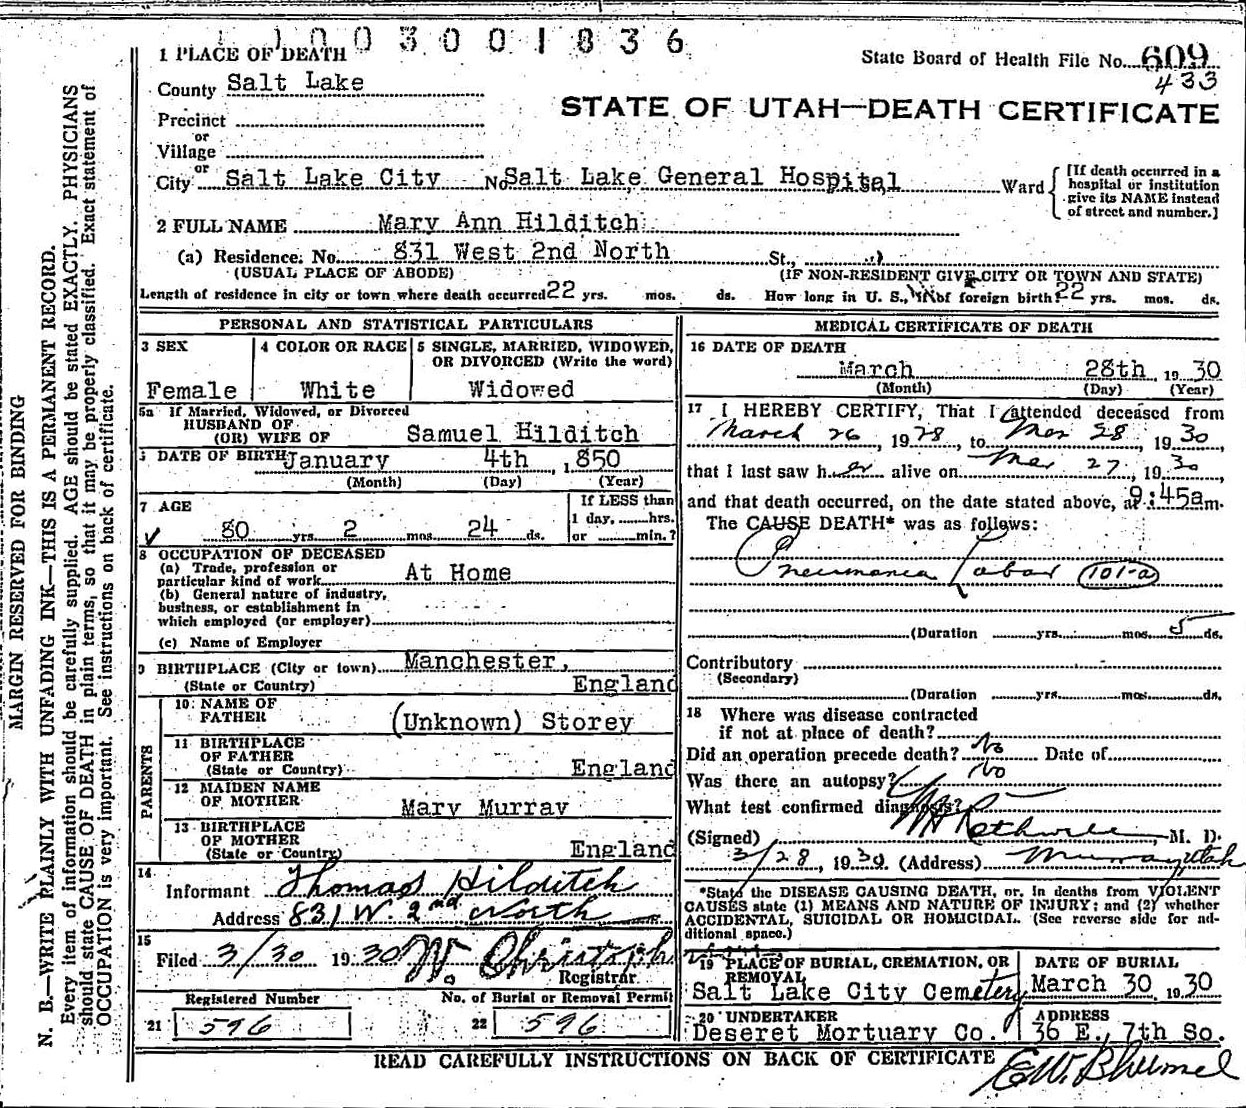 1003001836
1 PLACE OF DEATH
State Board of Health File No. 609
433
County Salt Lake
STATE OF UTAH—DEATH CERTIFICATE
Precinct
or
Village
or
City Salt Lake City No Salt Lake General Hospital, Ward
[If death occurred in a
hospital or institution
give its NAME instead
of street and number.]
2 FULL NAME Mary Ann Hilditch
(a) Residence. No. 831 West 2nd North St.,
(USUAL PLACE OF ABODE) (IF NON-RESIDENT GIVE CITY OR TOWN AND STATE)
Length of residence in city or town where death occurred 22 yrs. mos. ds. How long in U. S., if of foreign birth? 22 yrs. mos. ds.
PERSONAL AND STATISTICAL PARTICULARS
3 SEX
Female
4 COLOR OR RACE
White
5 SINGLE, MARRIED, WIDOWED,
OR DIVORCED (Write the word)
Widowed
5a If Married, Widowed, or Divorced
HUSBAND OF
(OR) WIFE OF Samuel Hilditch
DATE OF BIRTH January 4th, 1850
(Month) (Day) (Year)
7 AGE
80 yrs. 2 mos. 24 ds.
If LESS than
1 day, hrs.
or min.?
8 OCCUPATION OF DECEASED
(a) Trade, profession or
particular kind of work At Home
(b) General nature of industry,
business, or establishment in
which employed (or employer)
(c) Name of Employer
9 BIRTHPLACE (City or town) Manchester,
(State or Country) England
PARENTS
10 NAME OF
FATHER (Unknown) Storey
11 BIRTHPLACE
OF FATHER
(State or Country) England
12 MAIDEN NAME
OF MOTHER Mary Murray
13 BIRTHPLACE
OF MOTHER
(State or Country) England
14
Informant Thomas Hilditch
Address 831 W. 2nd North
15
Filed 3/30 1930 W. Christoph
Registrar
Registered Number
21 596
No. of Burial or Removal Permit
22 596
MEDICAL CERTIFICATE OF DEATH
16 DATE OF DEATH
March 28th, 1930
(Month) (Day) (Year)
17 I HEREBY CERTIFY, That I attended deceased from
March 26, 1928, to Mar 28, 1930
that I last saw her alive on Mar 27, 1930
and that death occurred, on the date stated above, at 9:45a m.
The CAUSE DEATH* was as follows:
Pneumonia Lobar 101-a
(Duration yrs. mos. 5 ds.
Contributory
(Secondary)
(Duration yrs. mos. ds.
18 Where was disease contracted
if not at place of death?
Did an operation precede death? No Date of
Was there an autopsy? No
What test confirmed diagnosis?
(Signed) Rothwell, M. D.
3/28, 1930 (Address) Murray, Utah
*State the DISEASE CAUSING DEATH, or, in deaths from VIOLENT
CAUSES state (1) MEANS AND NATURE OF INJURY; and (2) whether
ACCIDENTAL, SUICIDAL OR HOMICIDAL. (See reverse side for ad-
ditional space.)
19 PLACE OF BURIAL, CREMATION, OR
REMOVAL
Salt Lake City Cemetery
DATE OF BURIAL
March 30 1930
20 UNDERTAKER
Deseret Mortuary Co.
ADDRESS
36 E., 7th So.
READ CAREFULLY INSTRUCTIONS ON BACK OF CERTIFICATE
MARGIN RESERVED FOR BINDING
N. B.—WRITE PLAINLY WITH UNFADING INK—THIS IS A PERMANENT RECORD.
Every item of information should be carefully supplied. AGE should be stated EXACTLY. PHYSICIANS
should state CAUSE OF DEATH in plain terms, so that it may be properly classified. Exact statement of
OCCUPATION is very important. See instructions on back of certificate.